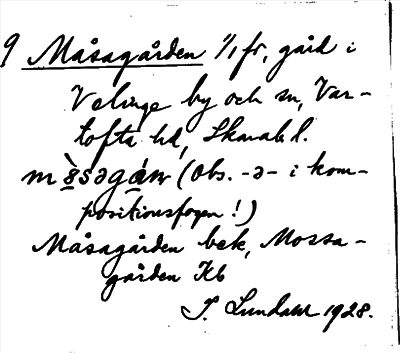 9 Måsagården 1/1 fr, gård i
Velinge by och sn, Var-
tofta hd, Skarab. l.
(Obs. -ə- i kom-
positionsfogen!)
Måsagården bek, Mossa-
gården Kb
I. Lundahl 1928.